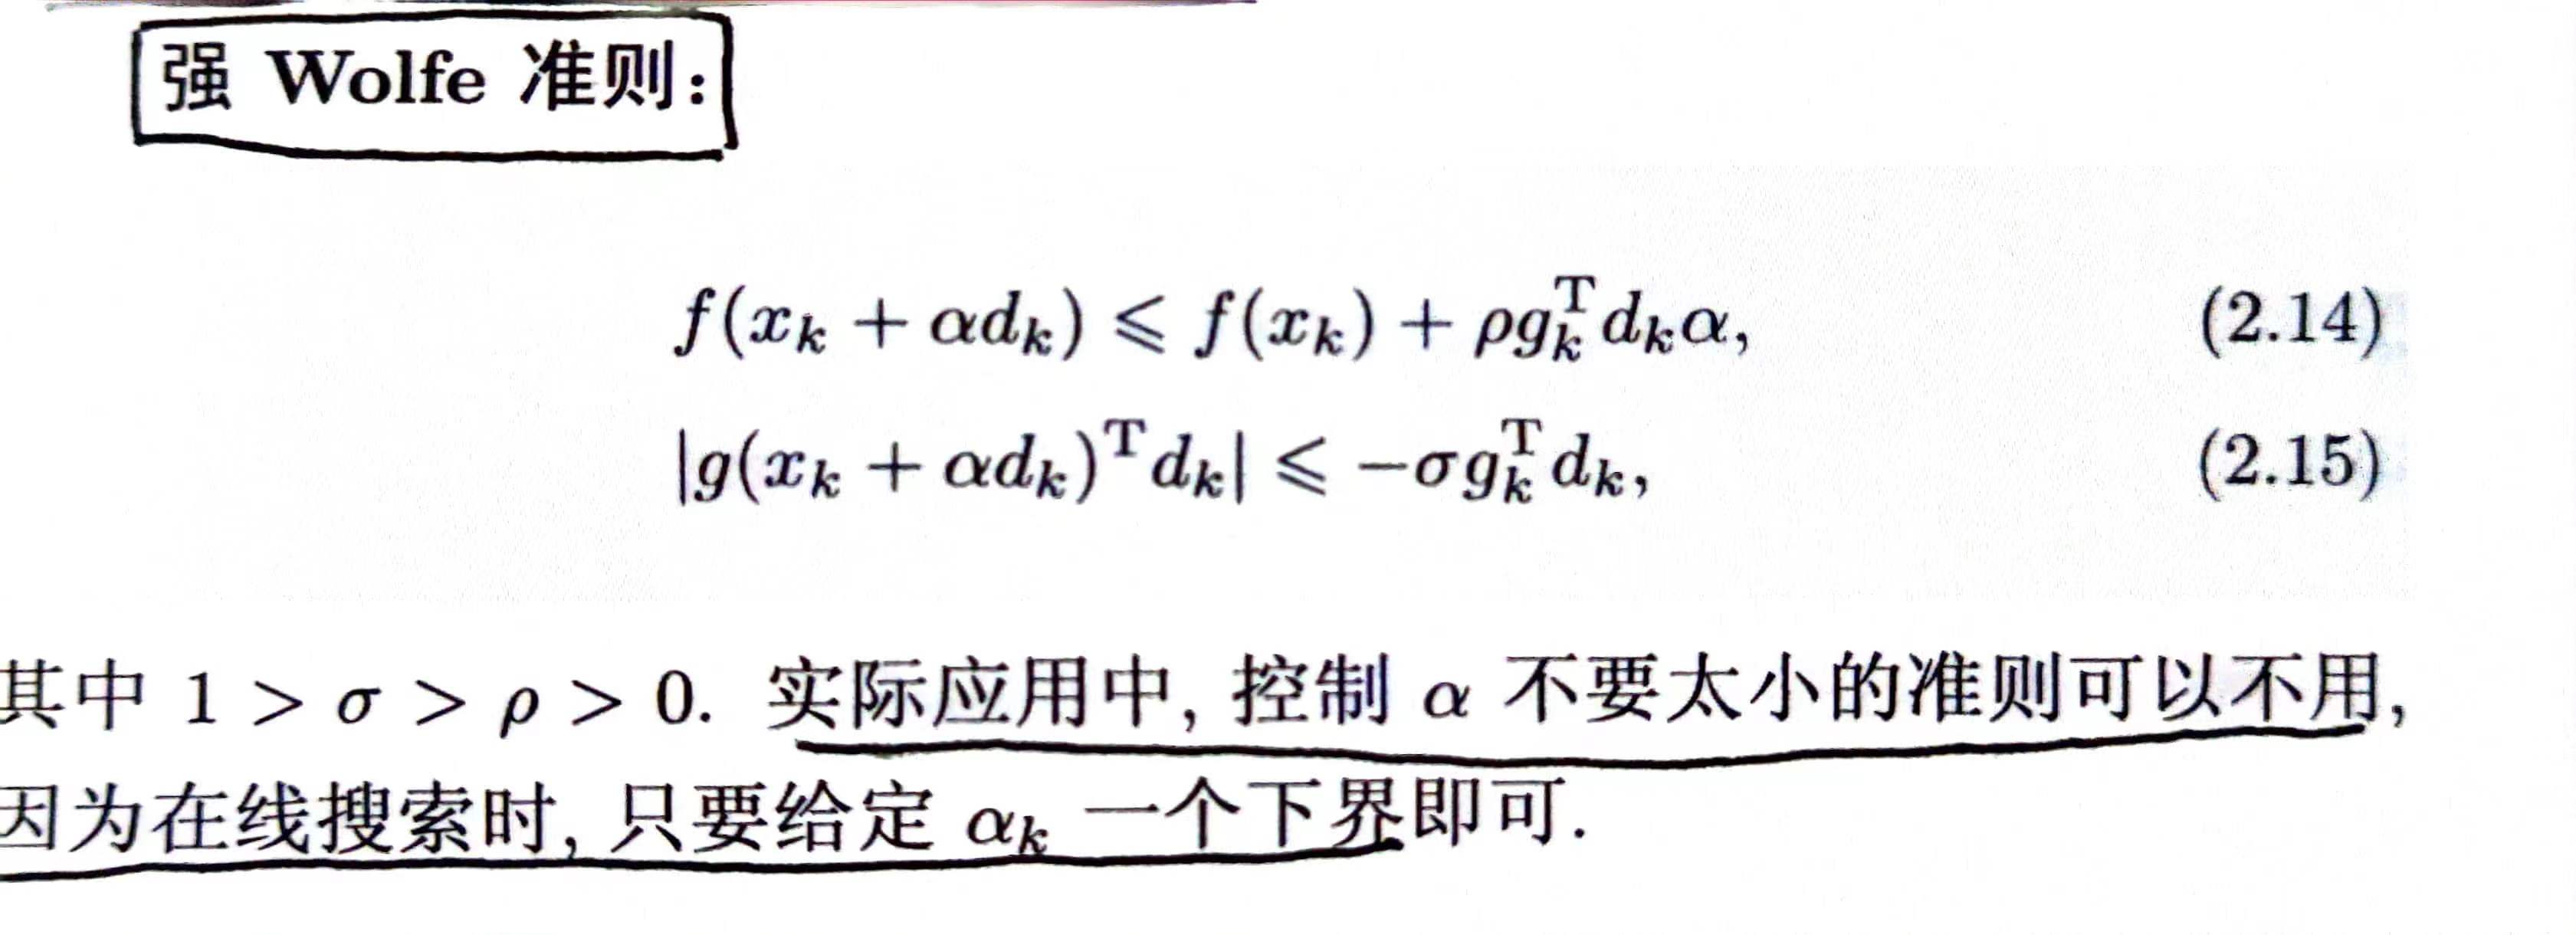 强 Wolfe 准则:
f(x_k + αd_k) ⩽ f(x_k) + ρg_k^T d_kα, (2.14)
|g(x_k + αd_k)^T d_k| ⩽ −σg_k^T d_k, (2.15)
其中 1 > σ > ρ > 0. 实际应用中, 控制 α 不要太小的准则可以不用,
因为在线搜索时, 只要给定 α_k 一个下界即可.